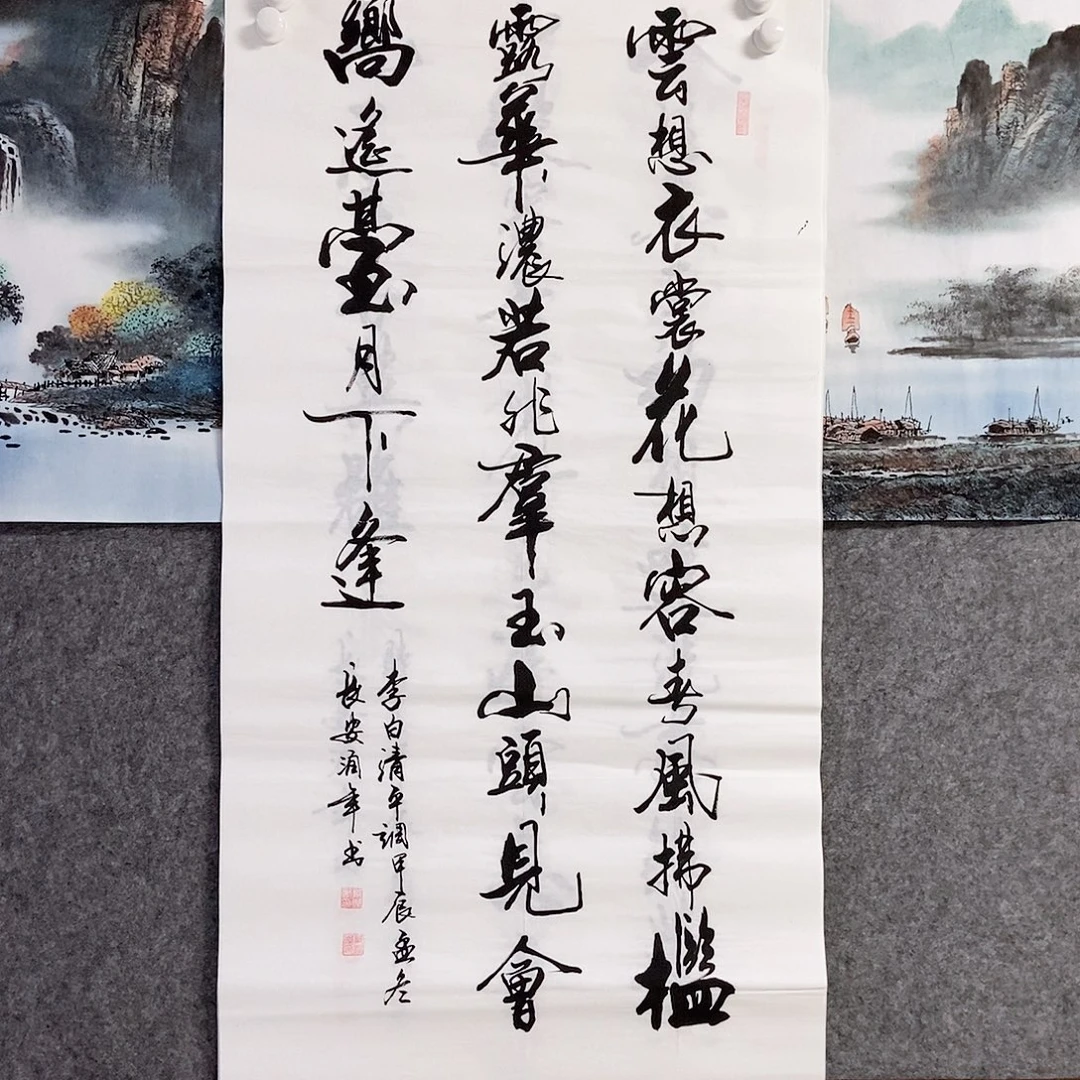 雲想衣裳花想容春風拂檻
露華濃若非羣玉山頭見會
嚮遙臺月下逢
李白清平調甲辰孟冬
長安年书